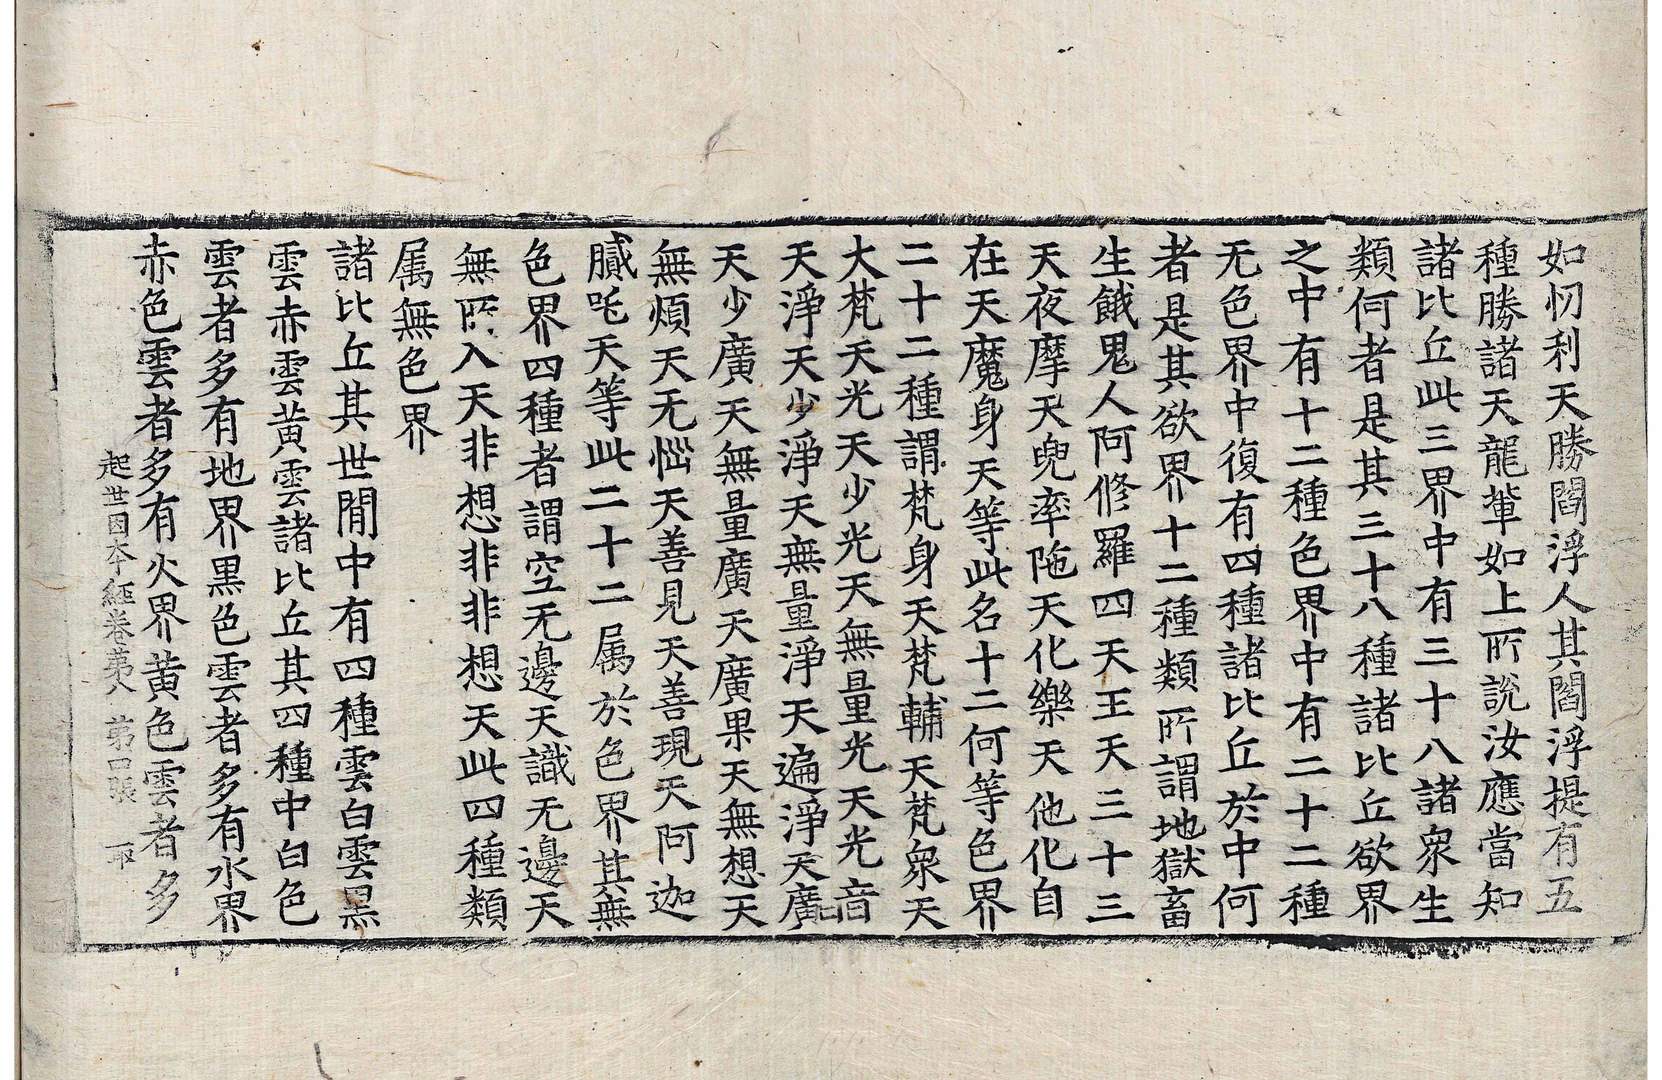 如忉利天勝閻浮人其閻浮提有五
種勝諸天龍軰如上所說汝應當知
諸比丘此三界中有三十八諸衆生
類何者是其三十八種諸比丘欲界
之中有十二種色界中有二十二種
无色界中復有四種諸比丘於中何
者是其欲界十二種類所謂地獄畜
生餓鬼人阿修羅四天王天三十三
天夜摩天兜率陁天化樂天他化自
在天魔身天等此名十二何等色界
二十二種謂梵身天梵輔天梵衆天
大梵天光天少光天無量光天光音
天淨天少淨天無量淨天遍淨天廣
天少廣天無量廣天廣果天無想天
無煩天无惱天善見天善現天阿迦
膩吒天等此二十二属於色界其無
色界四種者謂空无邊天識无邊天
無所入天非想非非想天此四種類
属無色界
諸比丘其世閒中有四種雲白雲黑
雲赤雲黃雲諸比丘其四種中白色
雲者多有地界黑色雲者多有水界
赤色雲者多有火界黃色雲者多
起世因本經卷苐八 苐口張 取